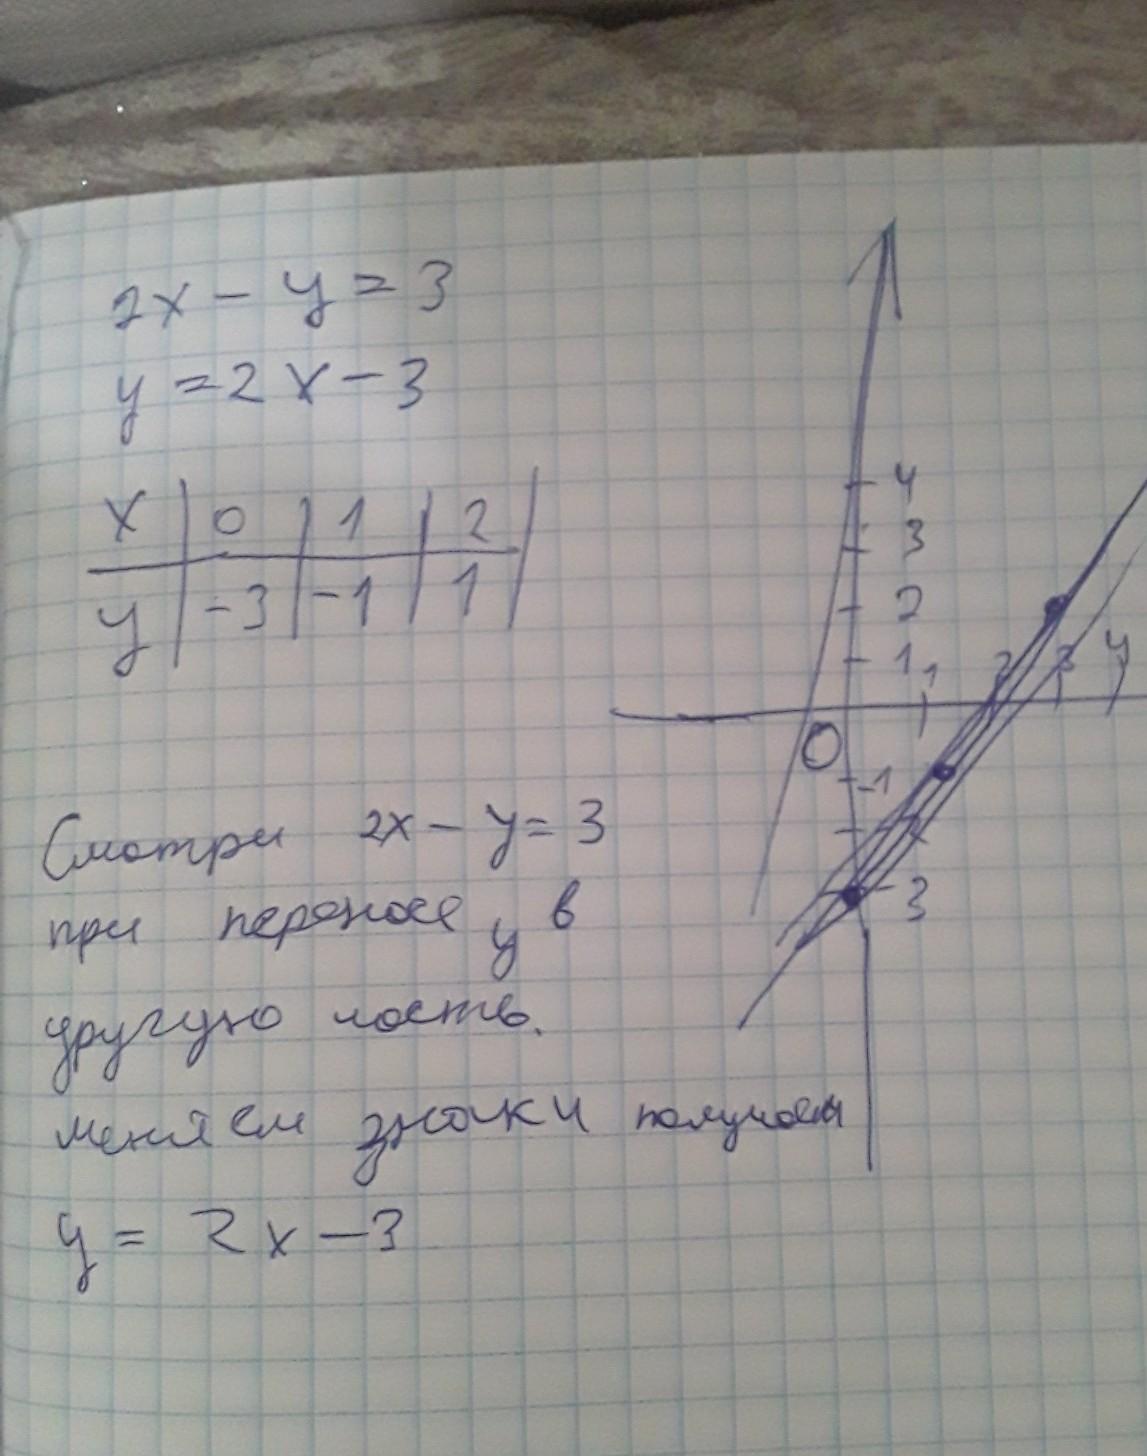 2x - y = 3
y = 2x - 3
x | 0 | 1 | 2 |
y | -3 | -1 | 1 |
4
3
2
1
1 2 3 4
0
-1
-3
Смотри 2x - y = 3
при переносе y в
другую часть.
меняем знаки получаем
y = 2x - 3